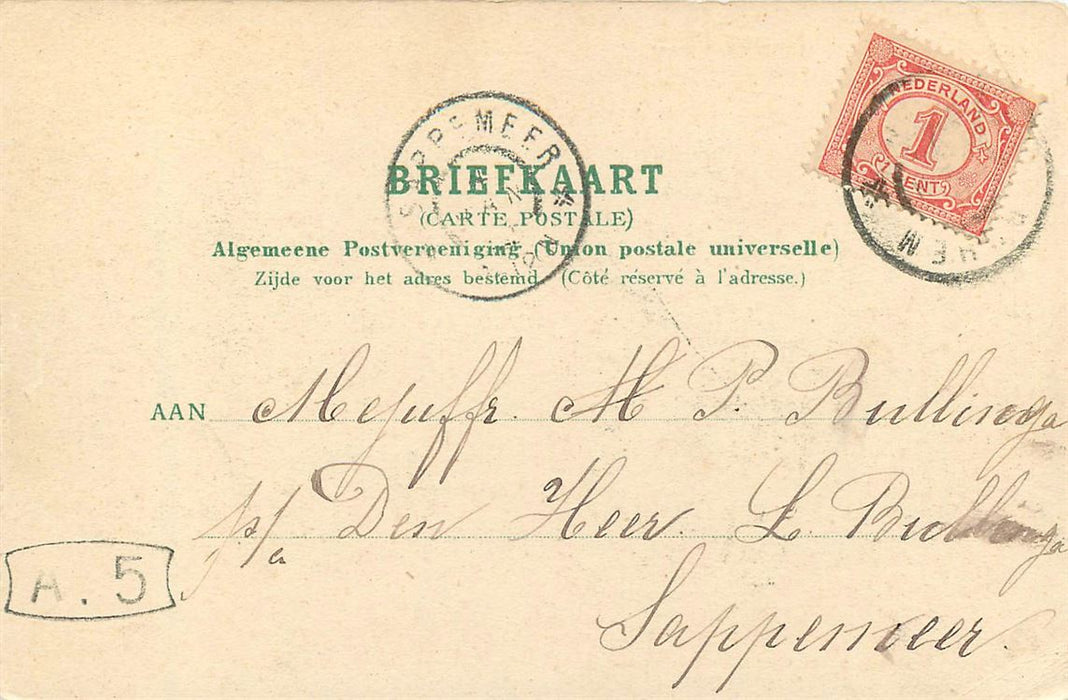 NEDERLAND
1
1 CENT
SAPPEMEER
BRIEFKAART
(CARTE POSTALE)
Algemeene Postvereeniging (Union postale universelle)
Zijde voor het adres bestemd (Côté réservé à l'adresse.)
AAN Mejuffr. M P. Bullinga
p/a Den Heer L Bullinga
Sappemeer.
A. 5